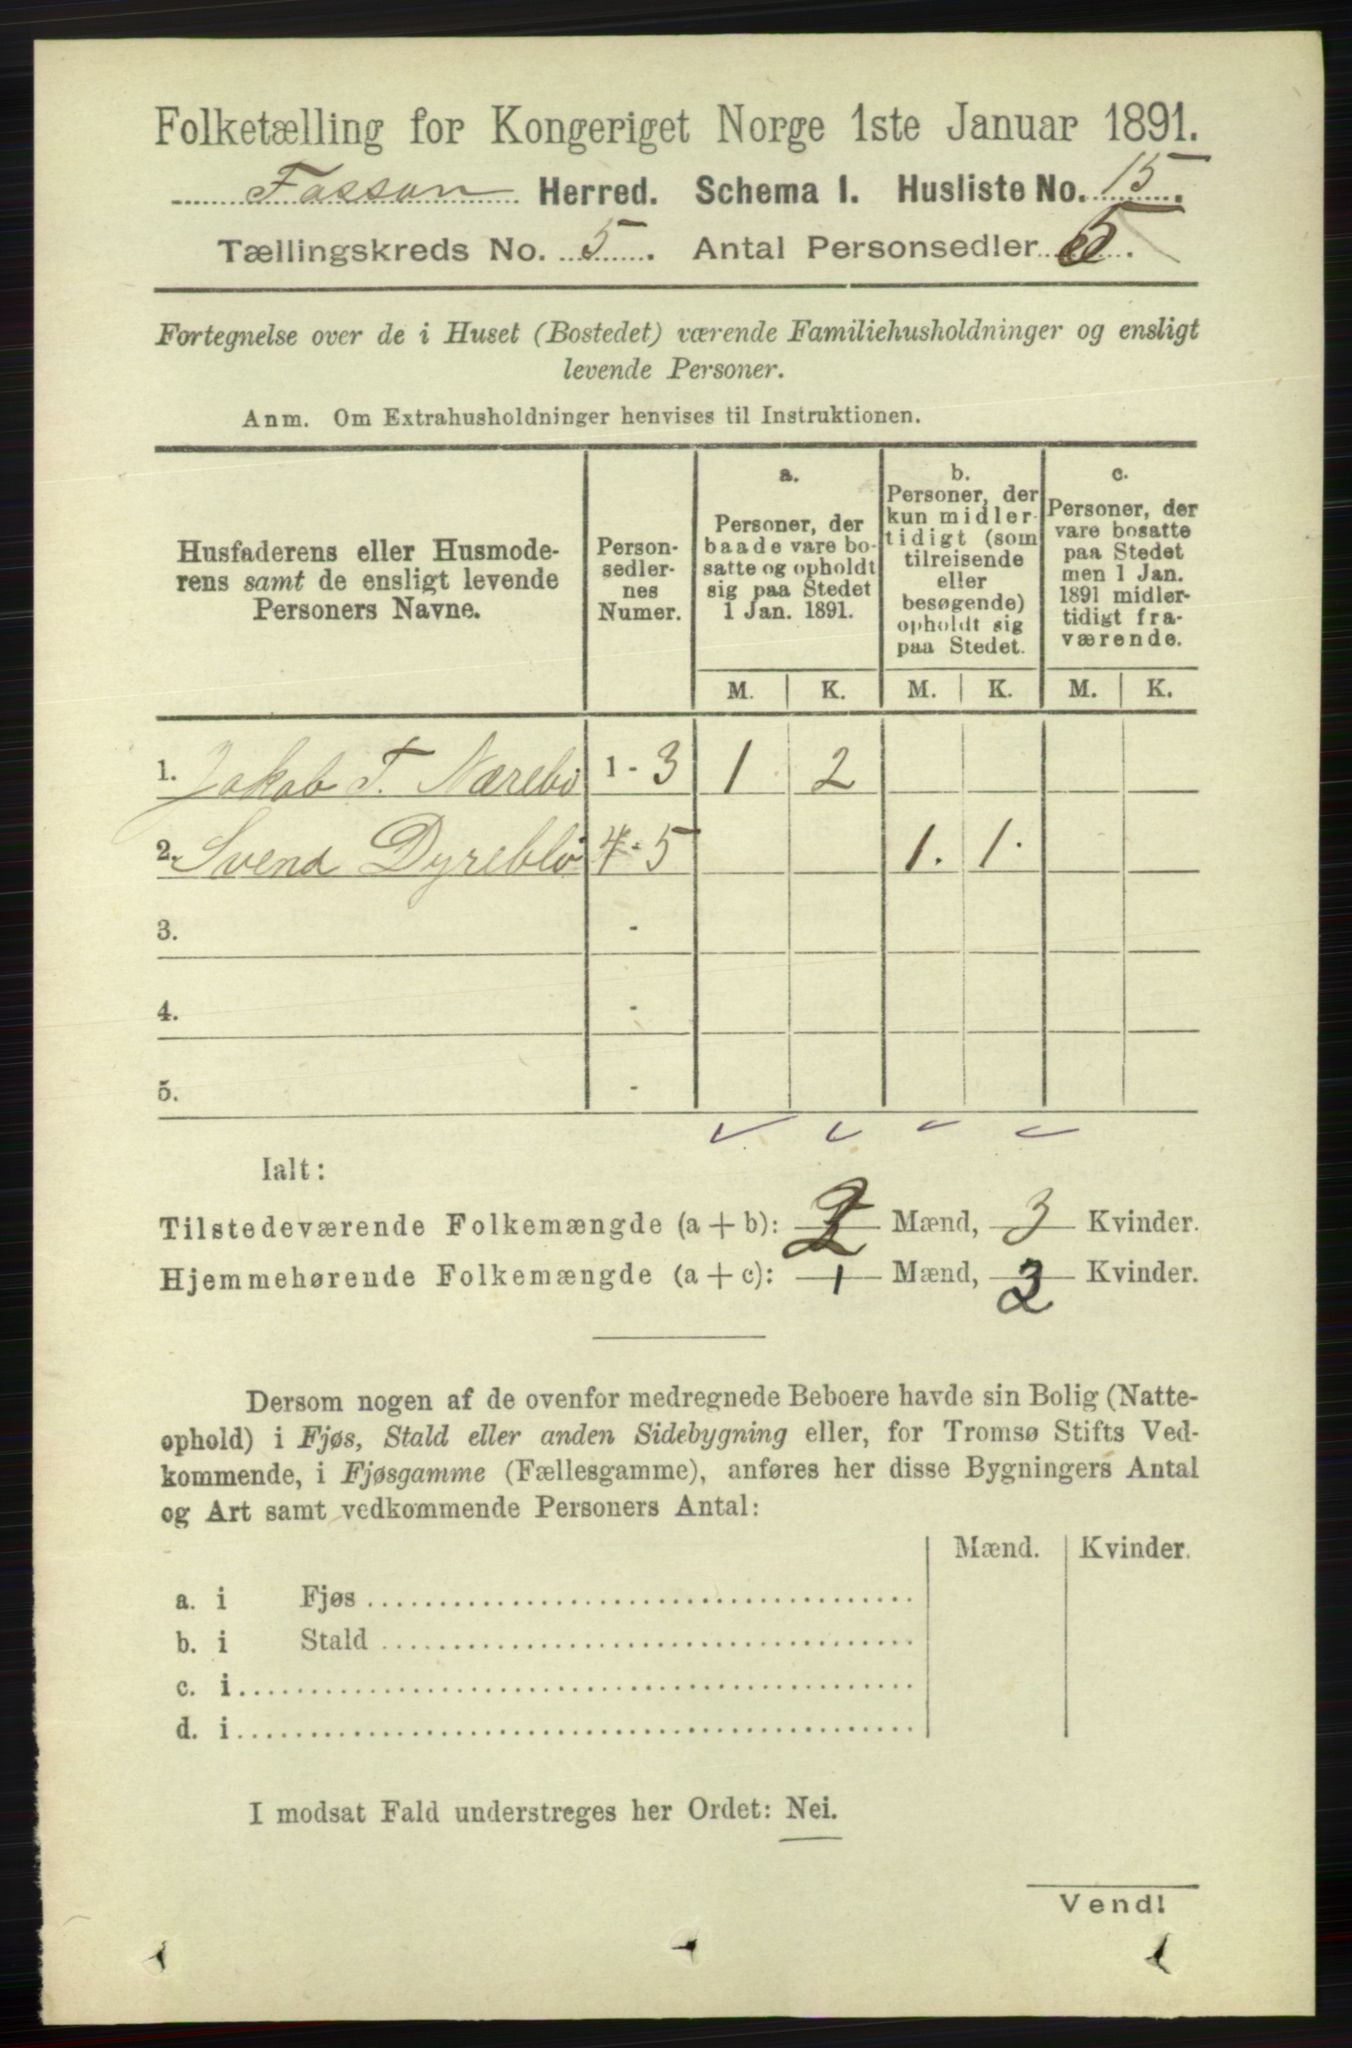 Folketælling for Kongeriget Norge 1ste Januar 1891.
Fossan Herred. Schema 1. Husliste No. 15.
Tællingskreds No. 5. Antal Personsedler 5.
Fortegnelse over de i Huset (Bostedet) værende Familiehusholdninger og ensligt
levende Personer.
Anm. Om Extrahusholdninger henvises til Instruktionen.
Husfaderens eller Husmode-
rens samt de ensligt levende
Personers Navne.
Person-
sedler-
nes
Numer.
a.
Personer, der
baade vare bo-
satte og opholdt
sig paa Stedet
1 Jan. 1891.
b.
Personer, der
kun midler-
tidigt (som
tilreisende
eller
besøgende)
opholdt sig
paa Stedet.
c.
Personer, der
vare bosatte
paa Stedet
men 1 Jan.
1891 midler-
tidigt fra-
værende.
M. K. M. K. M. K.
1. Jakob T. Nærebø 1 - 3 1 2
2. Svend Dyreblø 4 - 5 1. 1.
3. -
4. -
5. -
Ialt:
Tilstedeværende Folkemængde (a + b): 2 Mænd, 3 Kvinder.
Hjemmehørende Folkemængde (a + c): 1 Mænd, 2 Kvinder.
Dersom nogen af de ovenfor medregnede Beboere havde sin Bolig (Natte-
ophold) i Fjøs, Stald eller anden Sidebygning eller, for Tromsø Stifts Ved-
kommende, i Fjøsgamme (Fællesgamme), anføres her disse Bygningers Antal
og Art samt vedkommende Personers Antal:
Mænd. Kvinder.
a. i Fjøs
b. i Stald
c. i
d. i
I modsat Fald understreges her Ordet: Nei.
Vend!